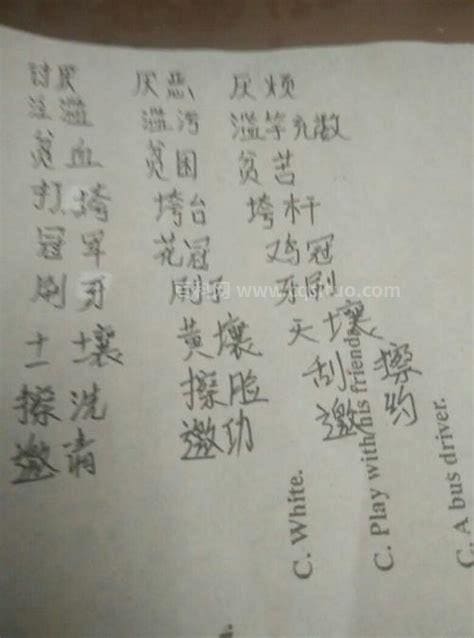 讨厌 厌恶 厌烦
泛滥 滥污 滥竽充数
贫血 贫困 贫苦
打垮 垮台 垮杆
冠军 花冠 鸡冠
刷牙 刷子 牙刷
土壤 黄壤 天壤
擦洗 擦脸 刮擦
邀请 邀功 邀约
C. White.
C. Play with his friends
C. A bus driver.